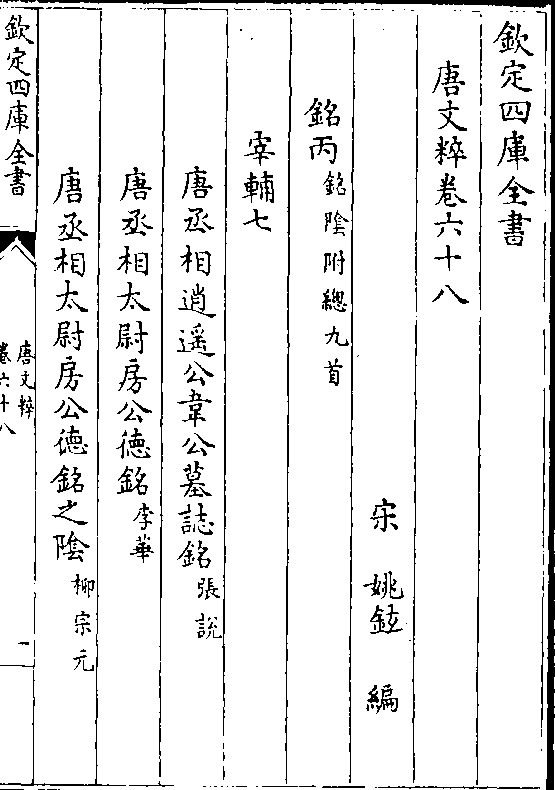 欽定四庫全書
唐文粹卷六十八
宋 姚鉉 編
銘丙銘陰附總九首
宰輔七
唐丞相逍遥公韋公墓誌銘張說
唐丞相太尉房公德銘李華
唐丞相太尉房公德銘之陰柳宗元
欽定四庫全書
唐文粹
卷六十八
一